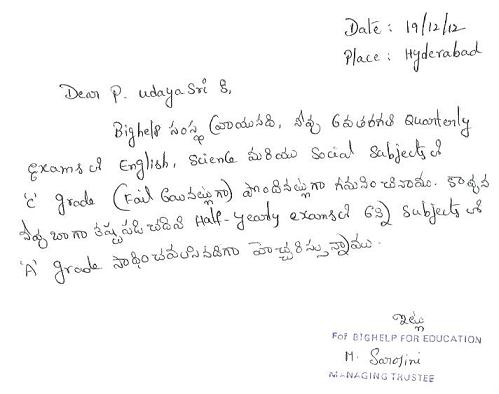 Date : 19/12/12
Place : Hyderabad
Dear P. Udaya Sri కి,
Bighelp సంస్థ వ్రాయునది, నీవు 6వ తరగతి Quarterly
exams లో English, Science మరియు Social Subjects లో
'C' grade (Fail అయినట్లుగా) పొందినట్లుగా గమనించినాము. కావున
నీవు బాగా కష్టపడి చదివి Half-yearly exams లో Subjects లో
'A' grade సాధించవలసినదిగా హెచ్చరిస్తున్నాము.
ఇట్లు
For BIGHELP FOR EDUCATION
M. Sarojini
MANAGING TRUSTEE